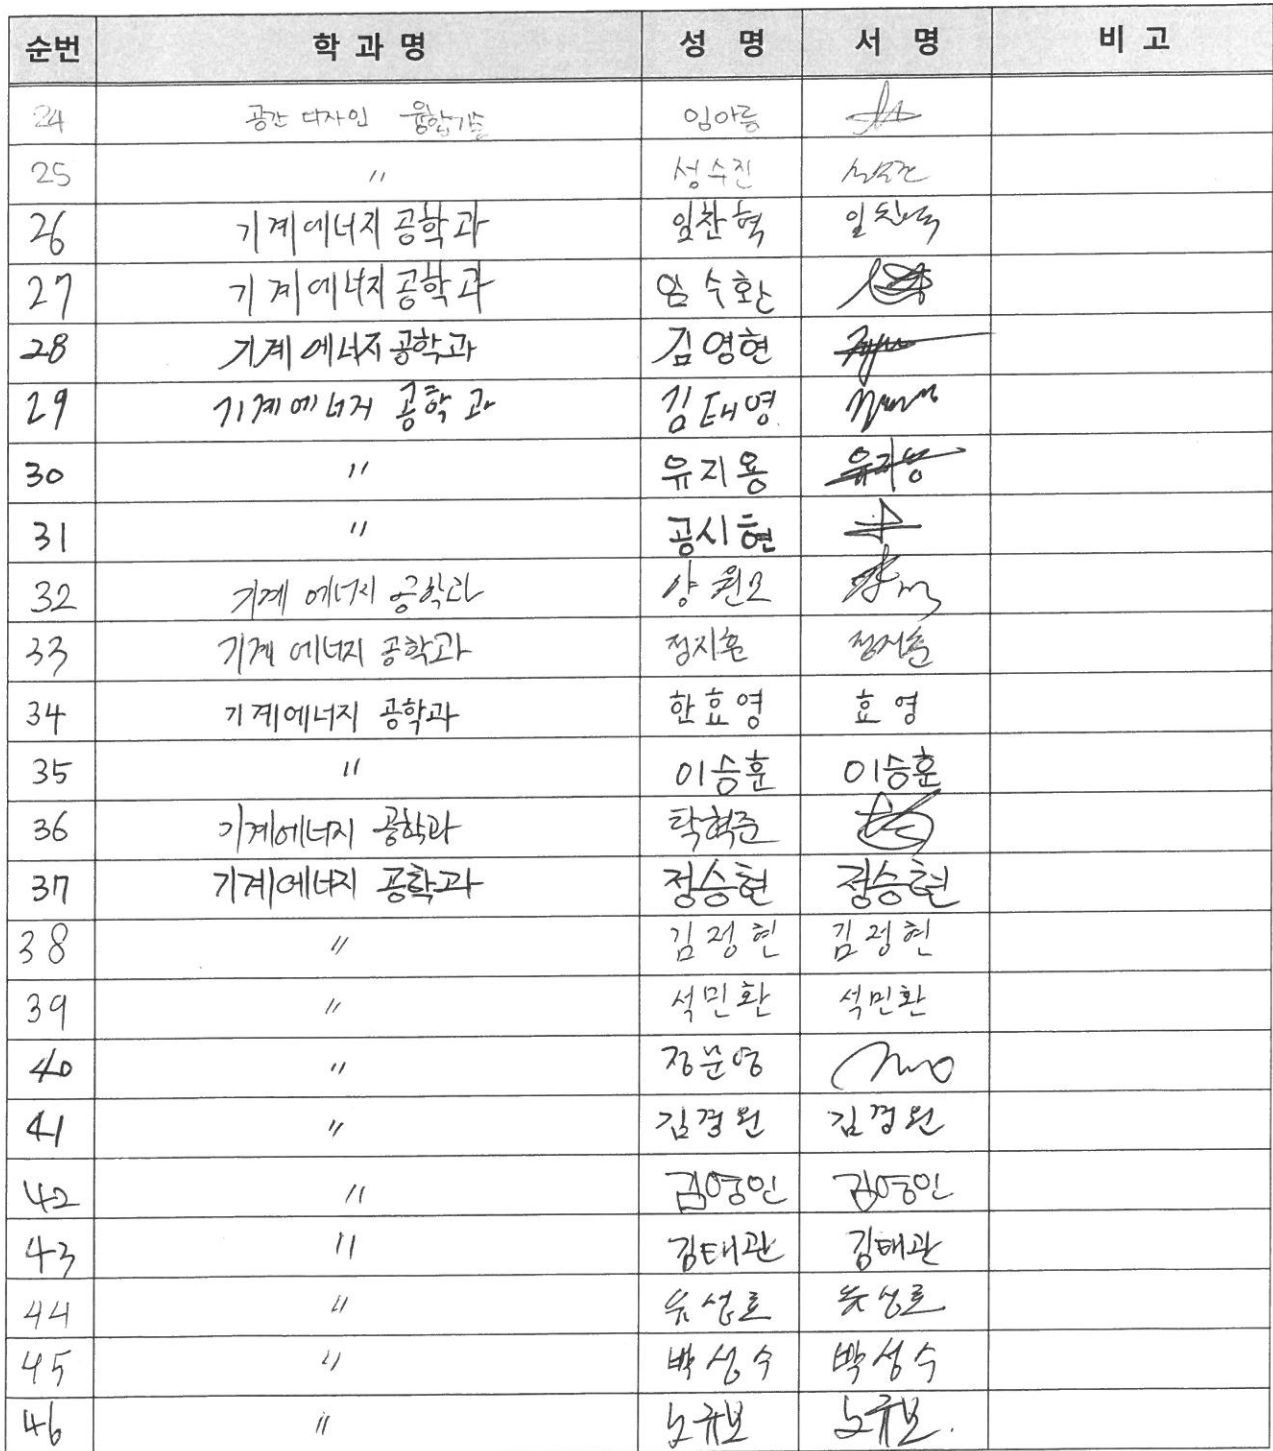 순번 학과명 성 명 서 명 비 고
24 공간 디자인 융합기술 임아름
25 〃 성수진
26 기계에너지공학과 임찬혁 임찬혁
27 기계에너지공학과 임수환
28 기계에너지공학과 김영현
29 기계에너지 공학과 김태영
30 〃 유지용 유지용
31 〃 공시현
32 기계 에너지 공학과 양원모
33 기계 에너지 공학과 정지훈 정지훈
34 기계에너지 공학과 한효영 효영
35 〃 이승훈 이승훈
36 기계에너지 공학과 탁혁준
37 기계에너지 공학과 정승현 정승현
38 〃 김정현 김정현
39 〃 석민환 석민환
40 〃 정문영
41 〃 김경원 김경원
42 〃 김영인 김영인
43 〃 김태관 김태관
44 〃
45 〃 박성수 박성수
46 〃 노규보 노규보.